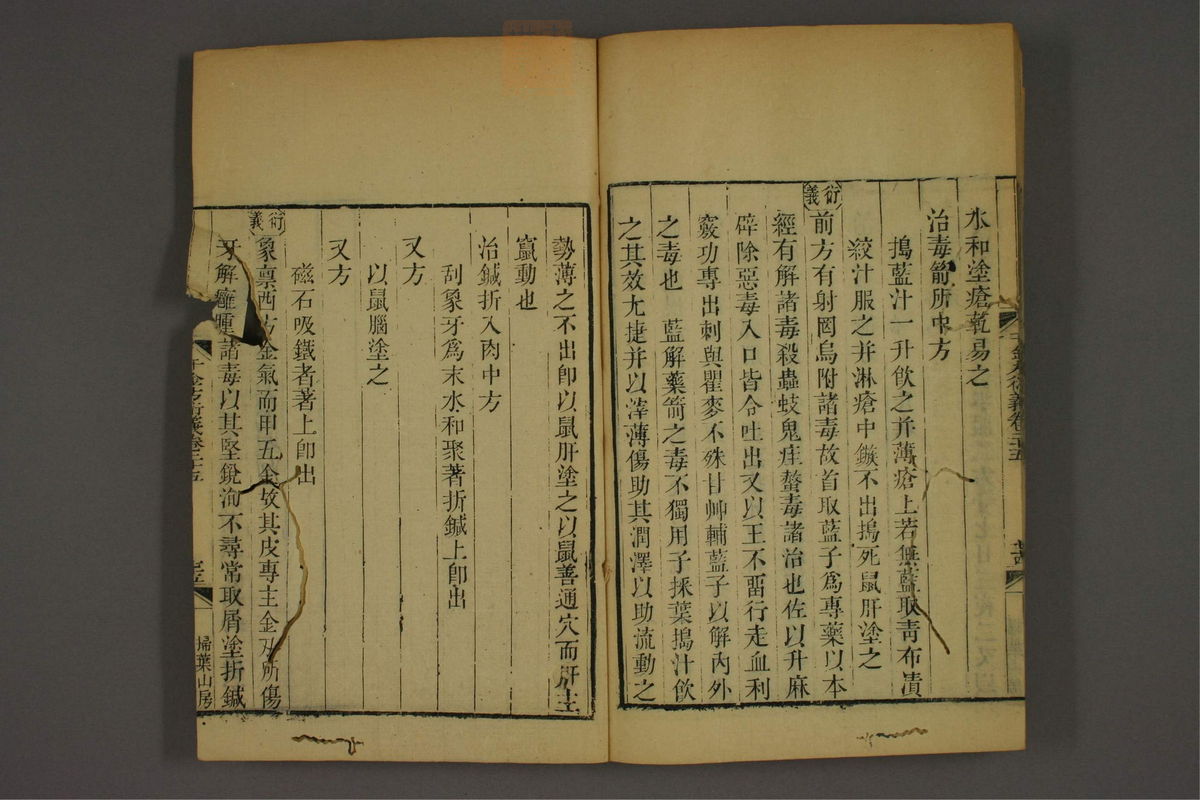 水和塗瘡乾易之
治毒箭所中方
搗藍汁一升飲之并薄瘡上若無藍取青布漬
絞汁服之并淋瘡中鏃不出搗死鼠肝塗之
衍義
前方有射罔烏附諸毒故首取藍子為專藥以本
經有解諸毒殺蟲蚑鬼疰螫毒諸治也佐以升麻
辟除惡毒入口皆令吐出又以王不畱行走血利
竅功專出刺與瞿麥不殊甘艸輔藍子以解內外
之毒也　藍解藥箭之毒不獨用子採葉搗汁飲
之其效尤捷并以滓薄傷助其潤澤以助流動之
勢薄之不出卽以鼠肝塗之以鼠善通穴而肝主
竄動也
治鍼折入肉中方
刮象牙爲末水和聚著折鍼上卽出
又方
以鼠腦塗之
又方
磁石吸鐵者著上卽出
衍義
象稟西方金氣而甲五金故其皮專主金刃所傷
牙解癰腫諸毒以其堅銳洵不尋常取屑塗折鍼
千金方衍義卷二十五
掃葉山房